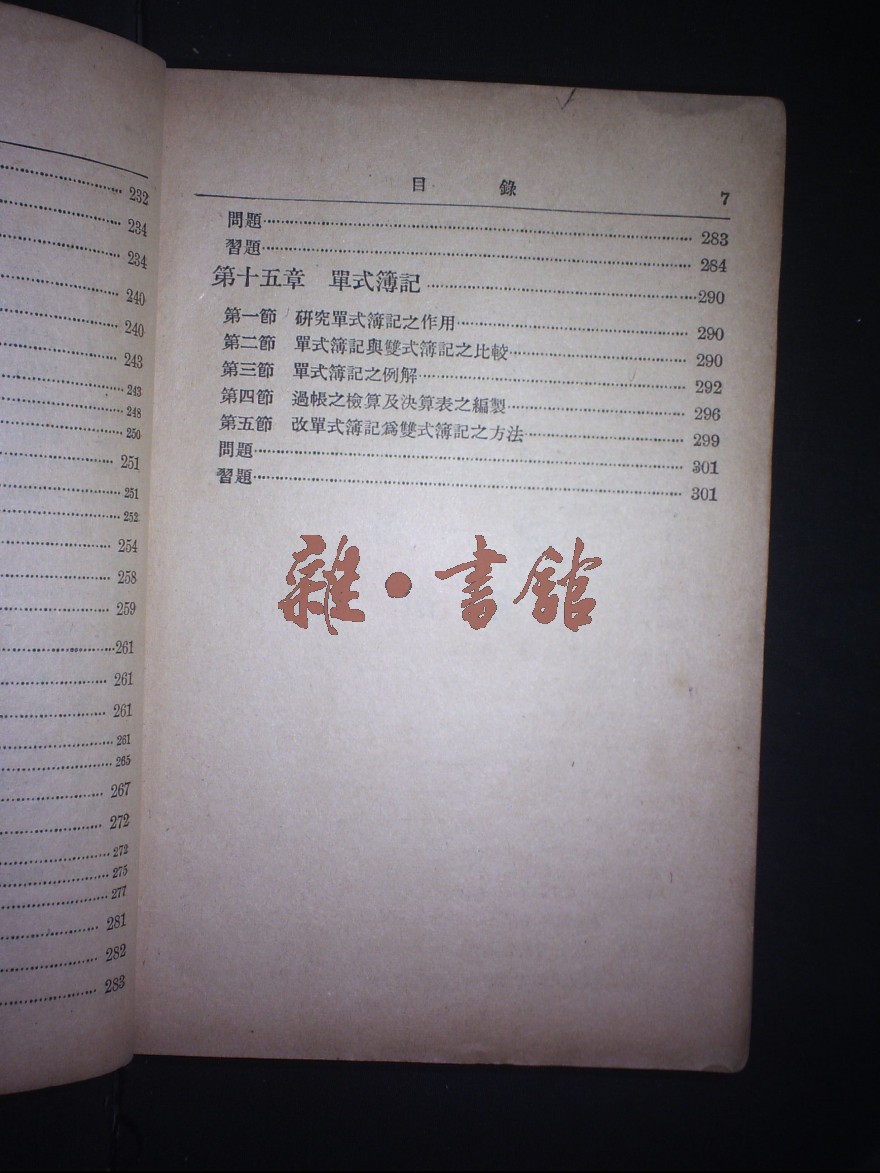 232
234
234
240
240
243
243
248
250
251
251
252
254
258
259
261
261
261
261
265
267
272
272
275
277
281
282
283
目錄 7
問題 283
習題 284
第十五章 單式簿記 290
第一節 研究單式簿記之作用 290
第二節 單式簿記與雙式簿記之比較 290
第三節 單式簿記之例解 292
第四節 過帳之檢算及決算表之編製 296
第五節 改單式簿記爲雙式簿記之方法 299
問題 301
習題 301
雜·書館